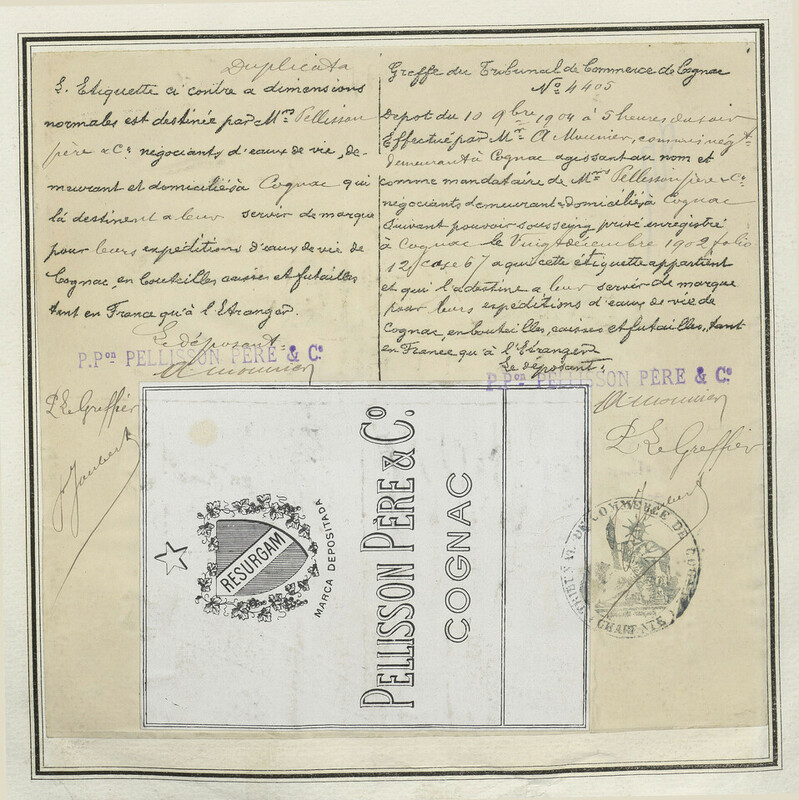 Duplicata
L. Etiquette ci contre a dimensions
normales est destinée par Mrs Pellisson
père & Ce négociants d'eaux de vie, de-
meurant et domiciliés à Cognac qui
la destinent a leur servir de marque
pour leurs expéditions d'eaux de vie de
Cognac en bouteilles caisses et futailles
tant en France qu'à l'Etranger.
Le déposant
P.Pon PELLISSON PÈRE & Co
A Mounier
P. Le Greffier
Joubert
Greffe du Tribunal de Commerce de Cognac
No 4405
Depot du 10 9bre 1904 à 5 heures du soir
Effectué par Mr A Mounier, commis négt
demeurant à Cognac agissant au nom et
comme mandataire de Mrs Pellisson père & Ce
négociants demeurant & domiciliés à Cognac
suivant pouvoir sous seing privé enregistré
à Cognac le Vingt décembre 1902 folio
12 case 67 a qui cette étiquette appartient
et qui l'a destine a leur servir de marque
pour leurs expéditions d'eaux de vie de
Cognac, en bouteilles, caisses et futailles, tant
en France qu'à l'Etranger
Le déposant.
P.Pon PELLISSON PÈRE & Co
A Mounier
P. Le Greffier
Joubert
RESURGAM
MARCA DEPOSITADA
PELLISSON PÈRE & Co.
COGNAC
COMMERCE DE
(CHARENTE)